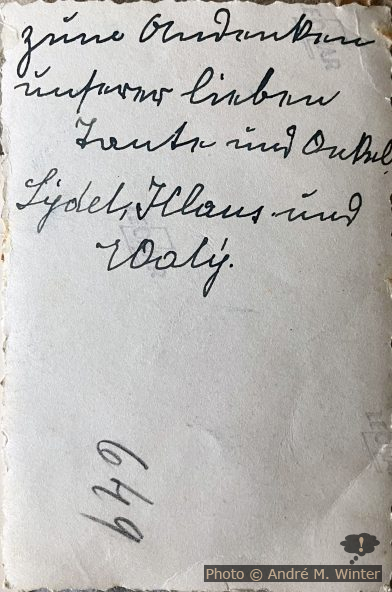 zum Andenken
unserer lieben
Tante und Onkel,
Lydel, Klaus und
Waly.
649
Photo © André M. Winter